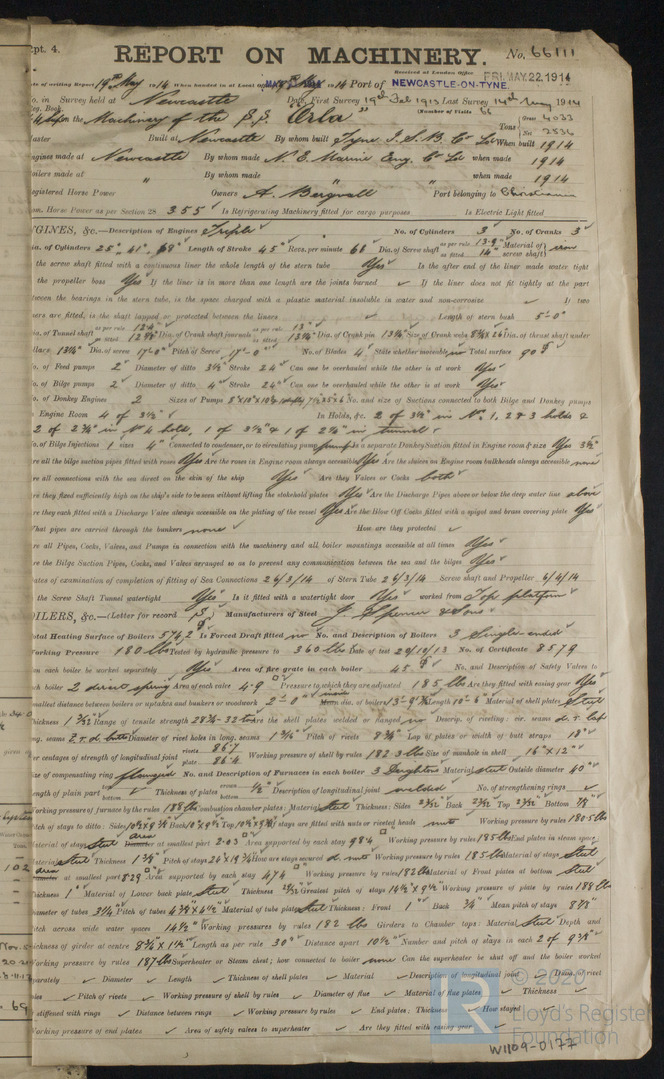 Rpt. 4.
REPORT ON MACHINERY. No. 66111
Received at London Office FRI. MAY. 22. 1914
of writing Report 19th May 1914 When handed in at Local 1914 Port of NEWCASTLE-ON-TYNE.
No. in Survey held at Newcastle Date, First Survey 19th Feb 1913 Last Survey 14th May 1914
Reg. Book. (Number of Visits 66
on the Machinery of the S.S. "Orla" Tons Gross 4033 Net 2536
Master Built at Newcastle By whom built Tyne I.S.B. Co Ld When built 1914
Engines made at Newcastle By whom made N.E. Marine Eng. Co Ld when made 1914
Boilers made at " By whom made " when made 1914
Registered Horse Power Owners A. Bergvall Port belonging to Christiania
Nom. Horse Power as per Section 28 355 Is Refrigerating Machinery fitted for cargo purposes Is Electric Light fitted
ENGINES, &c.—Description of Engines Triple No. of Cylinders 3 No. of Cranks 3
Dia. of Cylinders 25", 41", 68" Length of Stroke 45" Revs. per minute 66 Dia. of Screw shaft as per rule 13.9" as fitted 14" Material of screw shaft iron
the screw shaft fitted with a continuous liner the whole length of the stern tube Yes Is the after end of the liner made water tight
the propeller boss Yes If the liner is in more than one length are the joints burned ✓ If the liner does not fit tightly at the part
between the bearings in the stern tube, is the space charged with a plastic material insoluble in water and non-corrosive ✓ If two
liners are fitted, is the shaft lapped or protected between the liners ✓ Length of stern bush 5'-0"
Dia. of Tunnel shaft as per rule as fitted Dia. of Crank shaft journals as per rule 13" as fitted 13¼" Dia. of Crank pin 13¼" Size of Crank webs Dia. of thrust shaft under
collars 13¼" Dia. of screw 17'-0" Pitch of Screw 17'-0" No. of Blades 4 State whether moveable no Total surface 90
No. of Feed pumps 2 Diameter of ditto 3½" Stroke 24" Can one be overhauled while the other is at work Yes
No. of Bilge pumps 2 Diameter of ditto 4" Stroke 24" Can one be overhauled while the other is at work Yes
No. of Donkey Engines 2 Sizes of Pumps No. and size of Suctions connected to both Bilge and Donkey pumps
Engine Room 4 of 3½" In Holds, &c. 2 of 3½" in No. 1, 2 & 3 holds &
2 of 2¾" in No 4 hold, 1 of 3½" & 1 of 2¾" in tunnel
No. of Bilge Injections 1 sizes 4" Connected to condenser, or to circulating pump pump Is a separate Donkey Suction fitted in Engine room & size Yes 3½"
Are all the bilge suction pipes fitted with roses Yes Are the roses in Engine room always accessible Yes Are the sluices on Engine room bulkheads always accessible none
Are all connections with the sea direct on the skin of the ship Yes Are they Valves or Cocks both
Are they fixed sufficiently high on the ship's side to be seen without lifting the stokehold plates Yes Are the Discharge Pipes above or below the deep water line above
Are they each fitted with a Discharge Valve always accessible on the plating of the vessel Yes Are the Blow Off Cocks fitted with a spigot and brass covering plate Yes
What pipes are carried through the bunkers none How are they protected ✓
Are all Pipes, Cocks, Valves, and Pumps in connection with the machinery and all boiler mountings accessible at all times Yes
Are the Bilge Suction Pipes, Cocks, and Valves arranged so as to prevent any communication between the sea and the bilges Yes
Dates of examination of completion of fitting of Sea Connections 26/3/14 of Stern Tube 26/3/14 Screw shaft and Propeller 6/4/14
the Screw Shaft Tunnel watertight Yes Is it fitted with a watertight door Yes worked from Top platform
BOILERS, &c.—(Letter for record S) Manufacturers of Steel J. Spencer & Sons
Total Heating Surface of Boilers 5762 Is Forced Draft fitted no No. and Description of Boilers 3 Single-ended
Working Pressure 180 lbs Tested by hydraulic pressure to 360 lbs Date of test 29/10/13 No. of Certificate 8579
Can each boiler be worked separately Yes Area of fire grate in each boiler 45 No. and Description of Safety Valves to
each boiler 2 direct spring Area of each valve 4.9 Pressure to which they are adjusted 185 lbs Are they fitted with easing gear Yes
Smallest distance between boilers or uptakes and bunkers or woodwork 2'-0" dia. of boilers Length 10'-6" Material of shell plates Steel
Thickness 1 3/32 Range of tensile strength 28¾-32 tons Are the shell plates welded or flanged no Descrip. of riveting: cir. seams d.r. lap
long. seams T.r.d. butts Diameter of rivet holes in long. seams Pitch of rivets 8¾" Lap of plates or width of butt straps 18"
Per centages of strength of longitudinal joint rivets 86.7 plate 86.4 Working pressure of shell by rules 182.3 lbs Size of manhole in shell 16" x 12"
Size of compensating ring flanged No. and Description of Furnaces in each boiler 3 Deightons Material steel Outside diameter 40"
Length of plain part top bottom Thickness of plates crown bottom ½" Description of longitudinal joint welded No. of strengthening rings ✓
Working pressure of furnace by the rules 188 lbs Combustion chamber plates: Material steel Thickness: Sides 23/32" Back 23/32" Top 23/32" Bottom 7/8"
Pitch of stays to ditto: Sides Back Top If stays are fitted with nuts or riveted heads nuts Working pressure by rules 180.5 lbs
Material of stays steel area at smallest part 2.03 Area supported by each stay 98.4 Working pressure by rules 185 lbs End plates in steam space
Material steel Thickness Pitch of stays How are stays secured d. nuts Working pressure by rules 185 lbs Material of stays steel
area at smallest part 8.29 Area supported by each stay 474 Working pressure by rules 182 lbs Material of Front plates at bottom steel
Thickness 1" Material of Lower back plate steel Thickness Greatest pitch of stays Working pressure of plate by rules 188 lbs
Diameter of tubes 3¼" Pitch of tubes Material of tube plates steel Thickness: Front 1" Back ¾" Mean pitch of stays
Pitch across wide water spaces 14½" Working pressures by rules 182 lbs Girders to Chamber tops: Material steel Depth and
thickness of girder at centre Length as per rule 30" Distance apart 10½" Number and pitch of stays in each 2 of 9⅜"
Working pressure by rules 187 lbs Superheater or Steam chest; how connected to boiler none Can the superheater be shut off and the boiler worked
separately ✓ Diameter ✓ Length ✓ Thickness of shell plates ✓ Material ✓ Description of longitudinal joint ✓ Diam. of rivet
holes ✓ Pitch of rivets ✓ Working pressure of shell by rules ✓ Diameter of flue ✓ Material of flue plates ✓ Thickness ✓
If stiffened with rings ✓ Distance between rings ✓ Working pressure by rules ✓ End plates; Thickness ✓ How stayed
Working pressure of end plates ✓ Area of safety valves to superheater ✓ Are they fitted with easing gear ✓
© 2020
Lloyd's Register
Foundation
W1109-0177